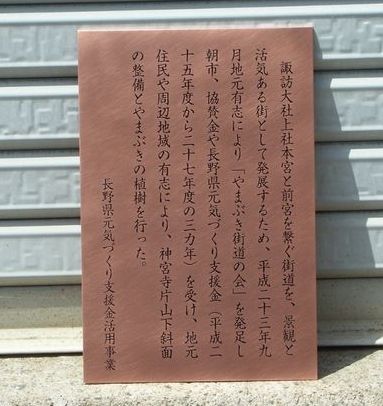 諏訪大社上社本宮と前宮を繋ぐ街道を、景観と
活気ある街として発展するため、平成二十三年九
月地元有志により「やまぶき街道の会」を発足し
朝市、協賛金や長野県元気づくり支援金(平成二
十五年度から二十七年度の三カ年)を受け、地元
住民や周辺地域の有志により、神宮寺片山下斜面
の整備とやまぶきの植樹を行った。
長野県元気づくり支援金活用事業